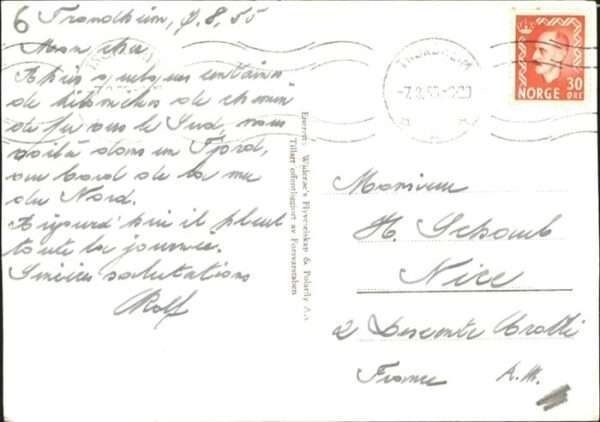 6 Trondheim, 7.8.55
Mon cher
Après quelques centaines
de kilomètres de chemin
de fer vers le Sud, nous
voilà dans un Fjord,
au bord de la mer
du Nord.
Aujourd'hui il pleut
toute la journée.
Sincères salutations
Rolf
Enerett: Widerøe's Flyveselskap & Polarfly A.s
Tillatt offentliggjort av Forsvarsstaben
TRONDHEIM
NORGE
30
ØRE
Monsieur
H. Schaub
Nice
2 Descente Crotti
France A.M.